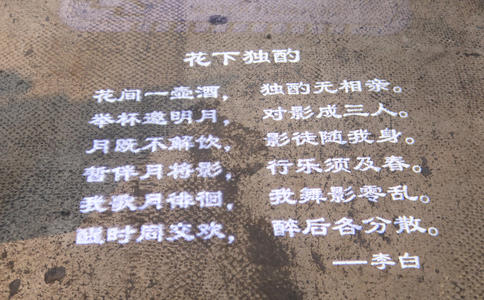 花下独酌
花间一壶酒， 独酌无相亲。
举杯邀明月， 对影成三人。
月既不解饮， 影徒随我身。
暂伴月将影， 行乐须及春。
我歌月徘徊， 我舞影零乱。
醒时同交欢， 醉后各分散。
——李白